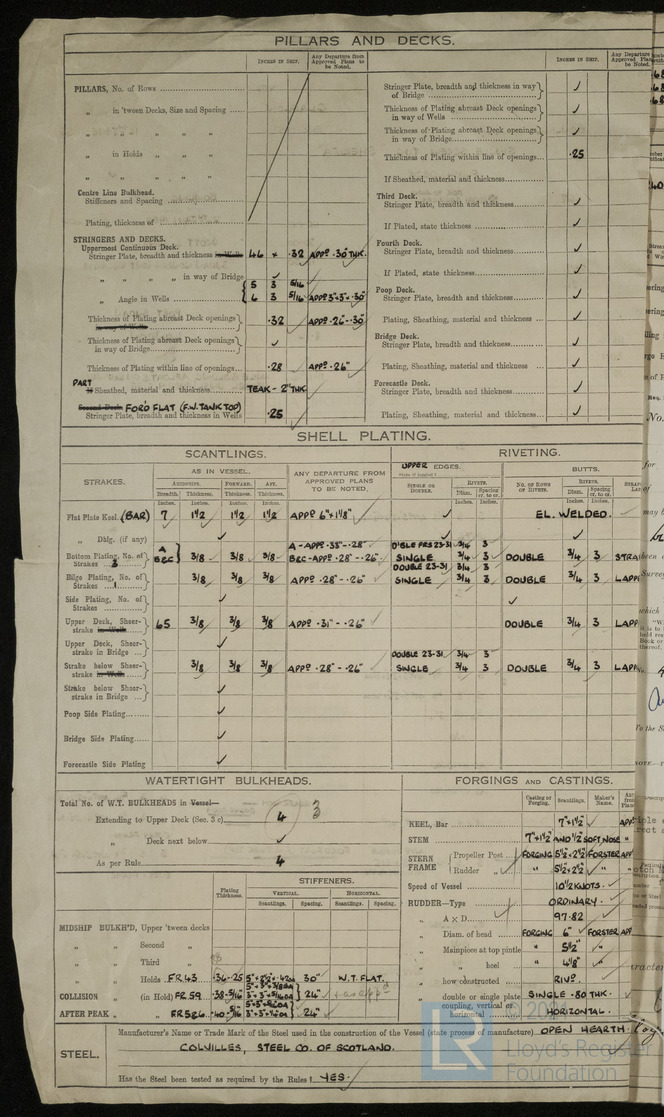 PILLARS AND DECKS.
INCHES IN SHIP.
Any Departure from Approved Plans to be Noted.
PILLARS, No. of Rows
„ in 'tween Decks, Size and Spacing
„ „ „ „
„ in Holds „ „
„ „ „ „
Centre Line Bulkhead.
Stiffeners and Spacing
Plating, thickness of
STRINGERS AND DECKS.
Uppermost Continuous Deck.
Stringer Plate, breadth and thickness in Wells 46 × .32 APPD .30 THK.
„ „ „ „ in way of Bridge ✓
„ Angle in Wells 5 3 5/16
6 3 5/16 APPD 3"×3"×.30"
Thickness of Plating abreast Deck openings in way of Wells .32 APPD .26"-.30"
Thickness of Plating abreast Deck openings in way of Bridge ✓
Thickness of Plating within line of openings .28 APPD .26"
PART
If Sheathed, material and thickness TEAK - 2" THK
Second Deck FOR'D FLAT (F.W. TANK TOP)
Stringer Plate, breadth and thickness in Wells .25
INCHES IN SHIP.
Any Departure Approved Plans be Noted
Stringer Plate, breadth and thickness in way of Bridge ✓
Thickness of Plating abreast Deck openings in way of Wells ✓
Thickness of Plating abreast Deck openings in way of Bridge ✓
Thickness of Plating within line of openings .25
If Sheathed, material and thickness ✓
Third Deck.
Stringer Plate, breadth and thickness ✓
If Plated, state thickness ✓
Fourth Deck.
Stringer Plate, breadth and thickness ✓
If Plated, state thickness ✓
Poop Deck.
Stringer Plate, breadth and thickness ✓
Plating, Sheathing, material and thickness ✓
Bridge Deck.
Stringer Plate, breadth and thickness ✓
Plating, Sheathing, material and thickness ✓
Forecastle Deck.
Stringer Plate, breadth and thickness ✓
Plating, Sheathing, material and thickness ✓
SHELL PLATING.
SCANTLINGS. RIVETING.
STRAKES.
AS IN VESSEL.
AMIDSHIPS. FORWARD. AFT.
Breadth. Thickness. Thickness. Thickness.
Inches. Inches. Inches. Inches.
ANY DEPARTURE FROM APPROVED PLANS TO BE NOTED.
UPPER EDGES.
SINGLE OR DOUBLE.
RIVETS.
Diam. Spacing cr. to cr.
BUTTS.
NO. OF ROWS OF RIVETS.
RIVETS.
Diam. Spacing cr. to cr.
Flat Plate Keel (BAR) 7 1½ 1½ 1½ APPD 6"×1⅛" ✓ EL. WELDED.
„ Dblg. (if any) ✓ ✓ ✓
Bottom Plating, No. of Strakes 3 A B&C 3/8 3/8 3/8 A-APPD .35"-.28" B&C-APPD .28"-.26" D'BLE FRS 23-31 3/4 3 SINGLE 3/4 3 DOUBLE 3/4 3 STRA
Bilge Plating, No. of Strakes 1 3/8 3/8 3/8 APPD .28"-.26" DOUBLE 23-31 3/4 3 SINGLE 3/4 3 DOUBLE 3/4 3 LAPP
Side Plating, No. of Strakes ✓ ✓
Upper Deck, Sheerstrake in Wells 65 3/8 3/8 3/8 APPD .31"-.26" DOUBLE 3/4 3 LAPP
Upper Deck, Sheerstrake in Bridge ✓
Strake below Sheerstrake in Wells 3/8 3/8 3/8 APPD .28"-.26" DOUBLE 23-31 3/4 3 SINGLE 3/4 3 DOUBLE 3/4 3 LAPP
Strake below Sheerstrake in Bridge ✓
Poop Side Plating ✓
Bridge Side Plating ✓
Forecastle Side Plating ✓
WATERTIGHT BULKHEADS.
Total No. of W.T. BULKHEADS in Vessel—
Extending to Upper Deck (Sec. 3 c) 4 3
„ Deck next below ✓
As per Rule 4
Plating Thickness.
STIFFENERS.
VERTICAL. HORIZONTAL.
Scantlings. Spacing. Scantlings. Spacing.
MIDSHIP BULKH'D, Upper 'tween decks
„ „ Second „
„ „ Third „
„ „ Holds FR 43 .36-.25 30" W.T. FLAT.
COLLISION „ (in Hold) FR 59 .38-5/16 24"
AFTER PEAK „ „ FR 5&6 24"
FORGINGS AND CASTINGS.
Casting or Forging. Scantlings. Maker's Name.
KEEL, Bar 7"×1½" ✓ APP
STEM 7"×1½" AND ½ SOFT NOSE „
STERN FRAME Propeller Post FORGING 5½"×2½" FORSTER APP
Rudder „ „ 5½"×2½" „ „
Speed of Vessel 10½ KNOTS.
RUDDER—Type ORDINARY.
„ A × D 97.82
„ Diam. of head FORGING 6" FORSTER APP
„ Mainpiece at top pintle „ 5½" „
„ „ heel „ 4⅛" „
„ how constructed RIVD.
„ double or single plate SINGLE .80 THK.
„ coupling, vertical or horizontal HORIZONTAL.
STEEL.
Manufacturer's Name or Trade Mark of the Steel used in the construction of the Vessel (state process of manufacture) OPEN HEARTH
COLVILLES, STEEL CO. OF SCOTLAND.
Has the Steel been tested as required by the Rules? YES.
LR
Lloyd's Register
Foundation